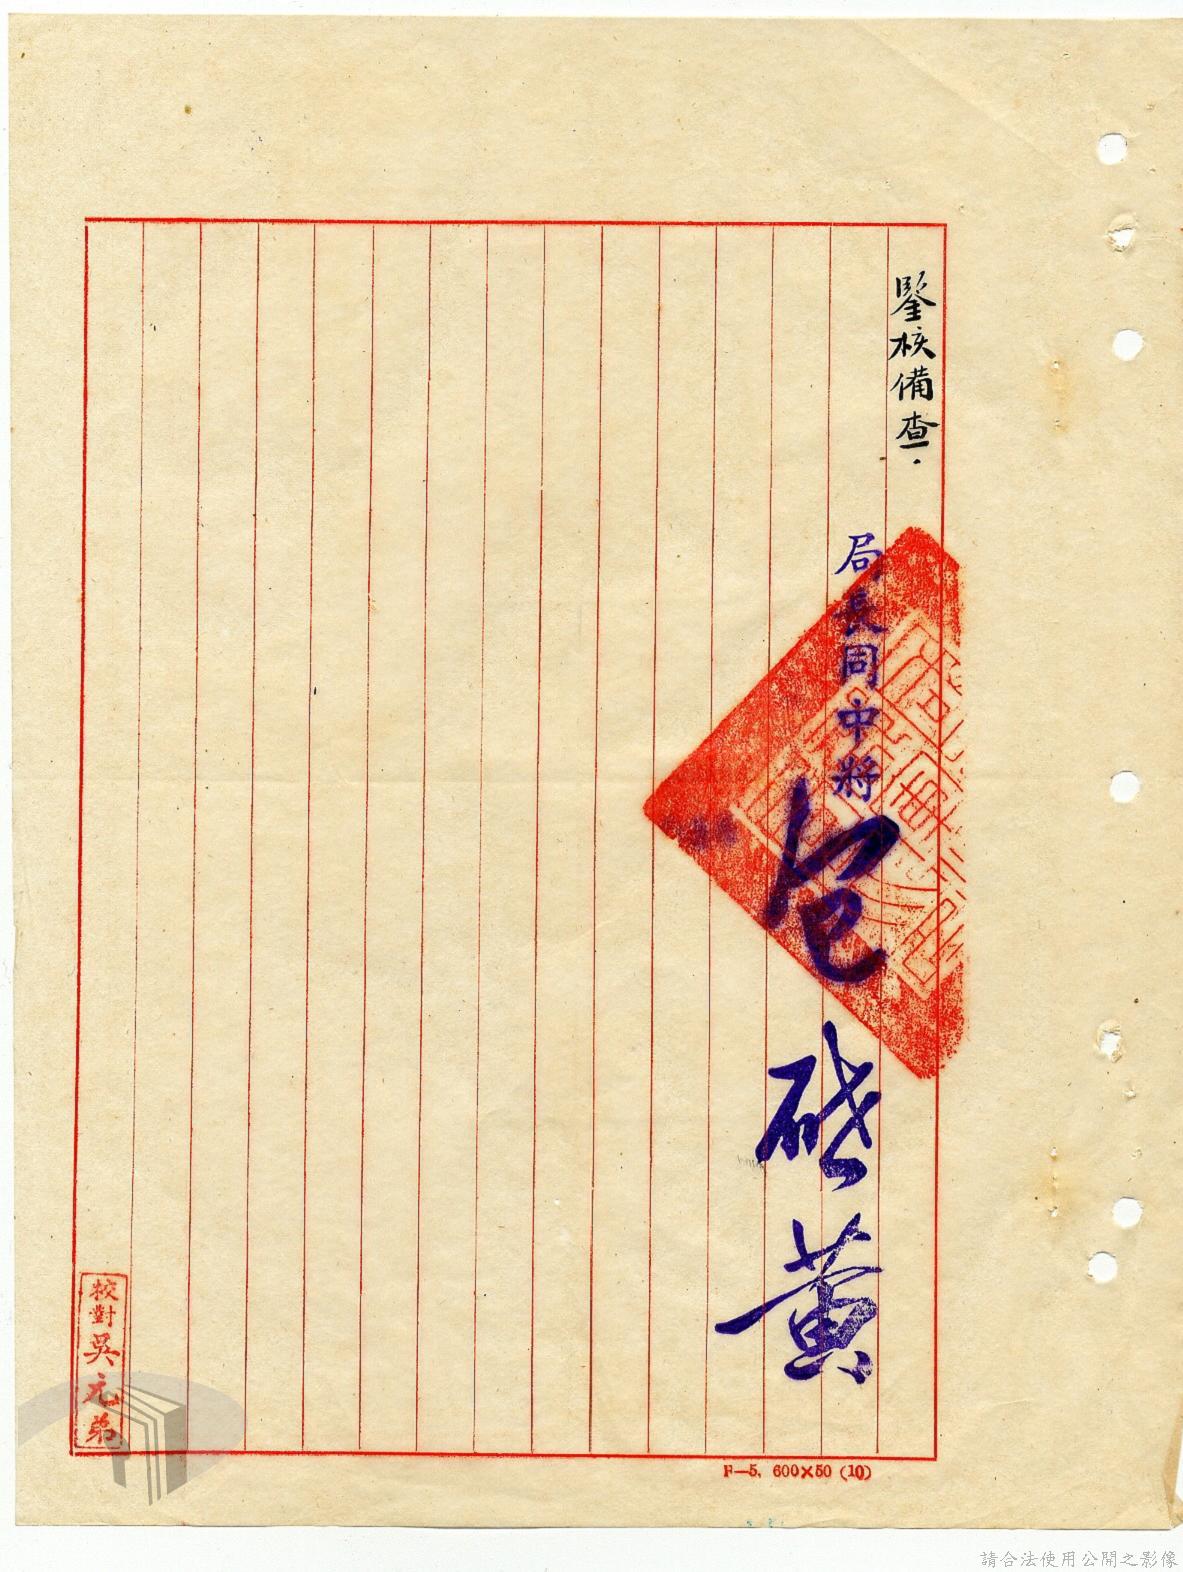 鋻核備查.
局長同中將
包啟黃
校對吳元弟
F—5, 600×50 (10)
請合法使用公開之影像